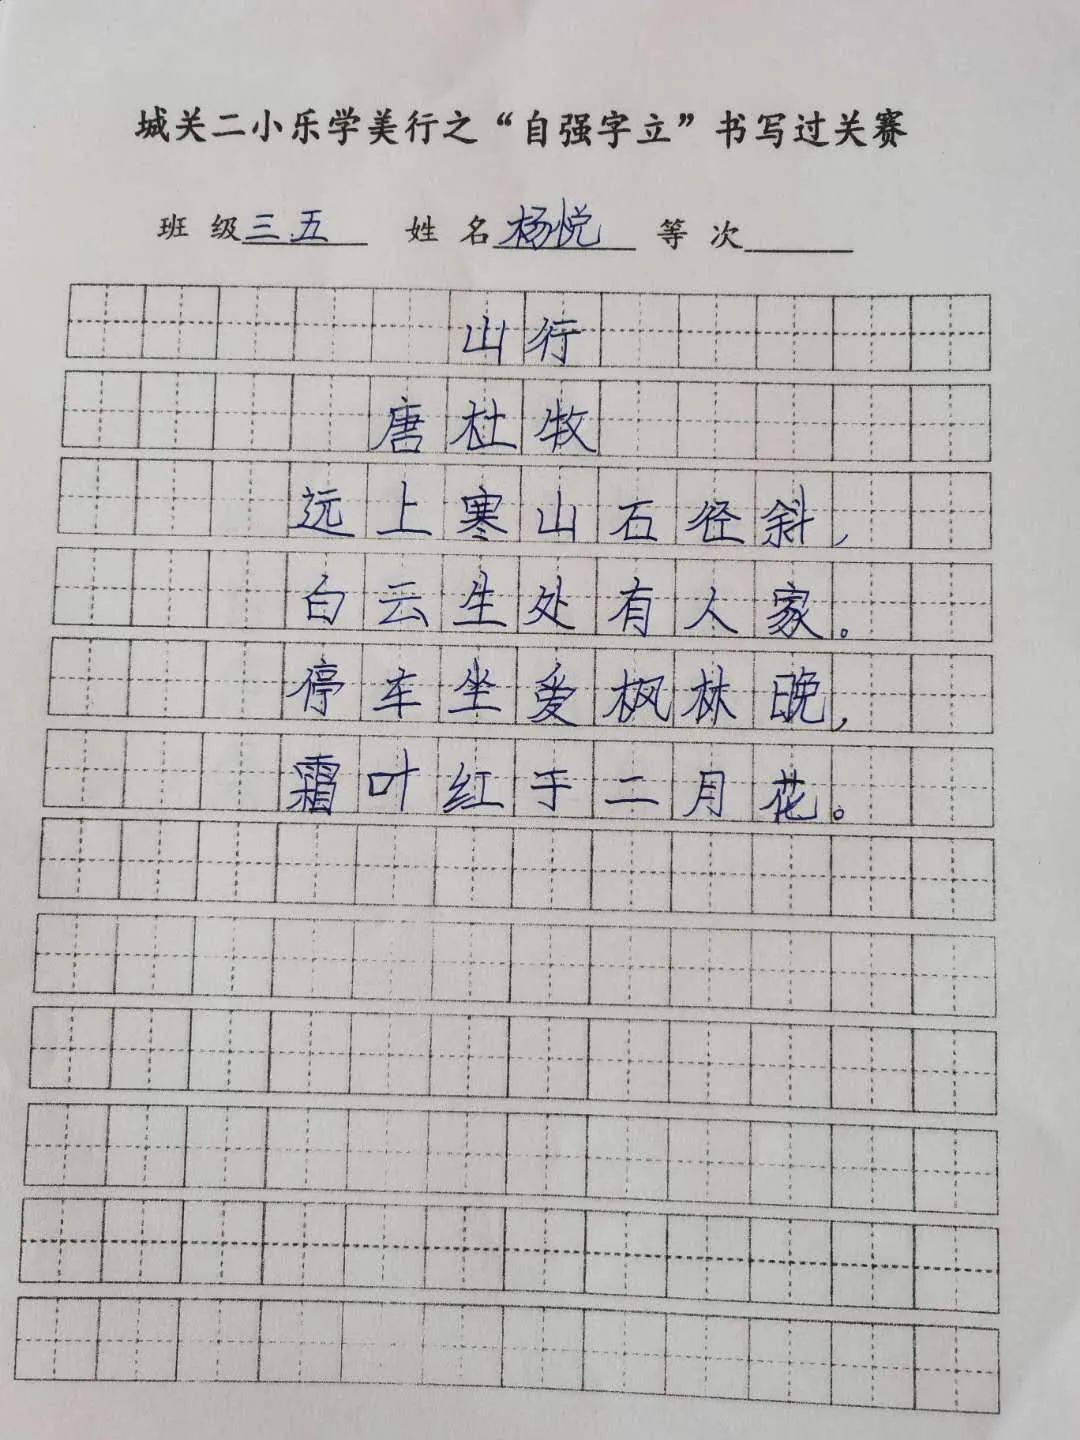 城关二小乐学美行之“自强字立”书写过关赛
班 级 三.五 姓 名 杨悦 等 次
山行
唐杜牧
远上寒山石径斜,
白云生处有人家。
停车坐爱枫林晚,
霜叶红于二月花。